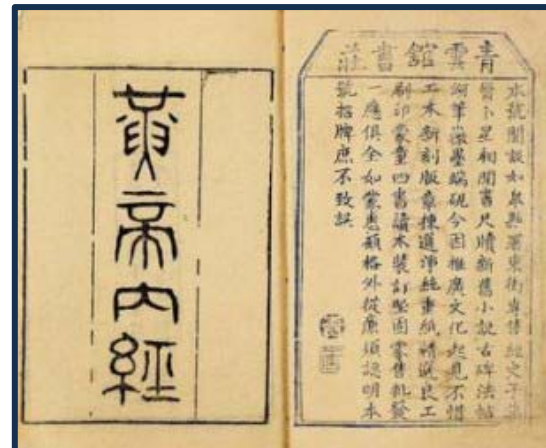 青雲舘書莊
本號開設如皋縣署東街專售經史子集
醫卜星相閒書尺牘新舊小說古碑法帖
湖筆徽墨端硯今因推廣文化起見不惜
工本新刻版章揀選淨重紙精良工
刷印蒙童四書讀本裝訂堅固零售批發
一應俱全如蒙惠顧格外從廉須認明本
號招牌庶不致誤
黃帝內經